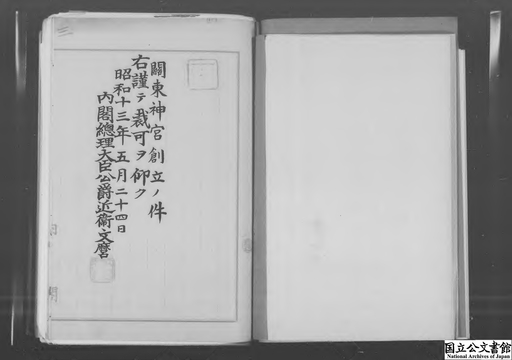 關東神宮創立ノ件
右謹テ裁可ヲ仰ク
昭和十三年五月二十四日
內閣總理大臣公爵近衞文麿
国立公文書館
National Archives of Japan